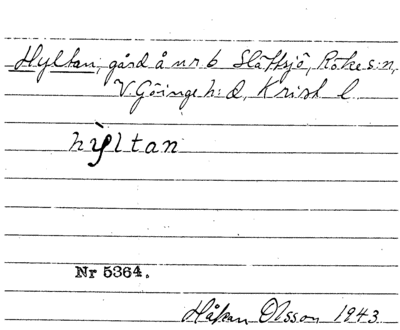 Hyltan, gård å nr 6 Slättsjö, Röke s:n,
V. Göinge h:d, Krist l.
hỳltan
Nr 5364.
Håkan Olsson 1943.